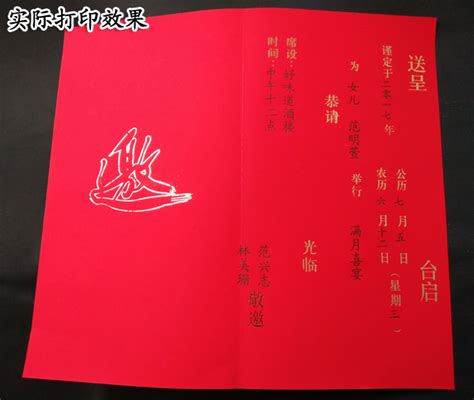 实际打印效果
送呈
台启
谨定于二零一七年
公历七月五日
农历六月十二日
(星期三)
为女儿范明萱举行满月喜宴
恭请
光临
席设:好味道酒楼
时间:中午十二点
范兴志
林美珊
敬邀
邀